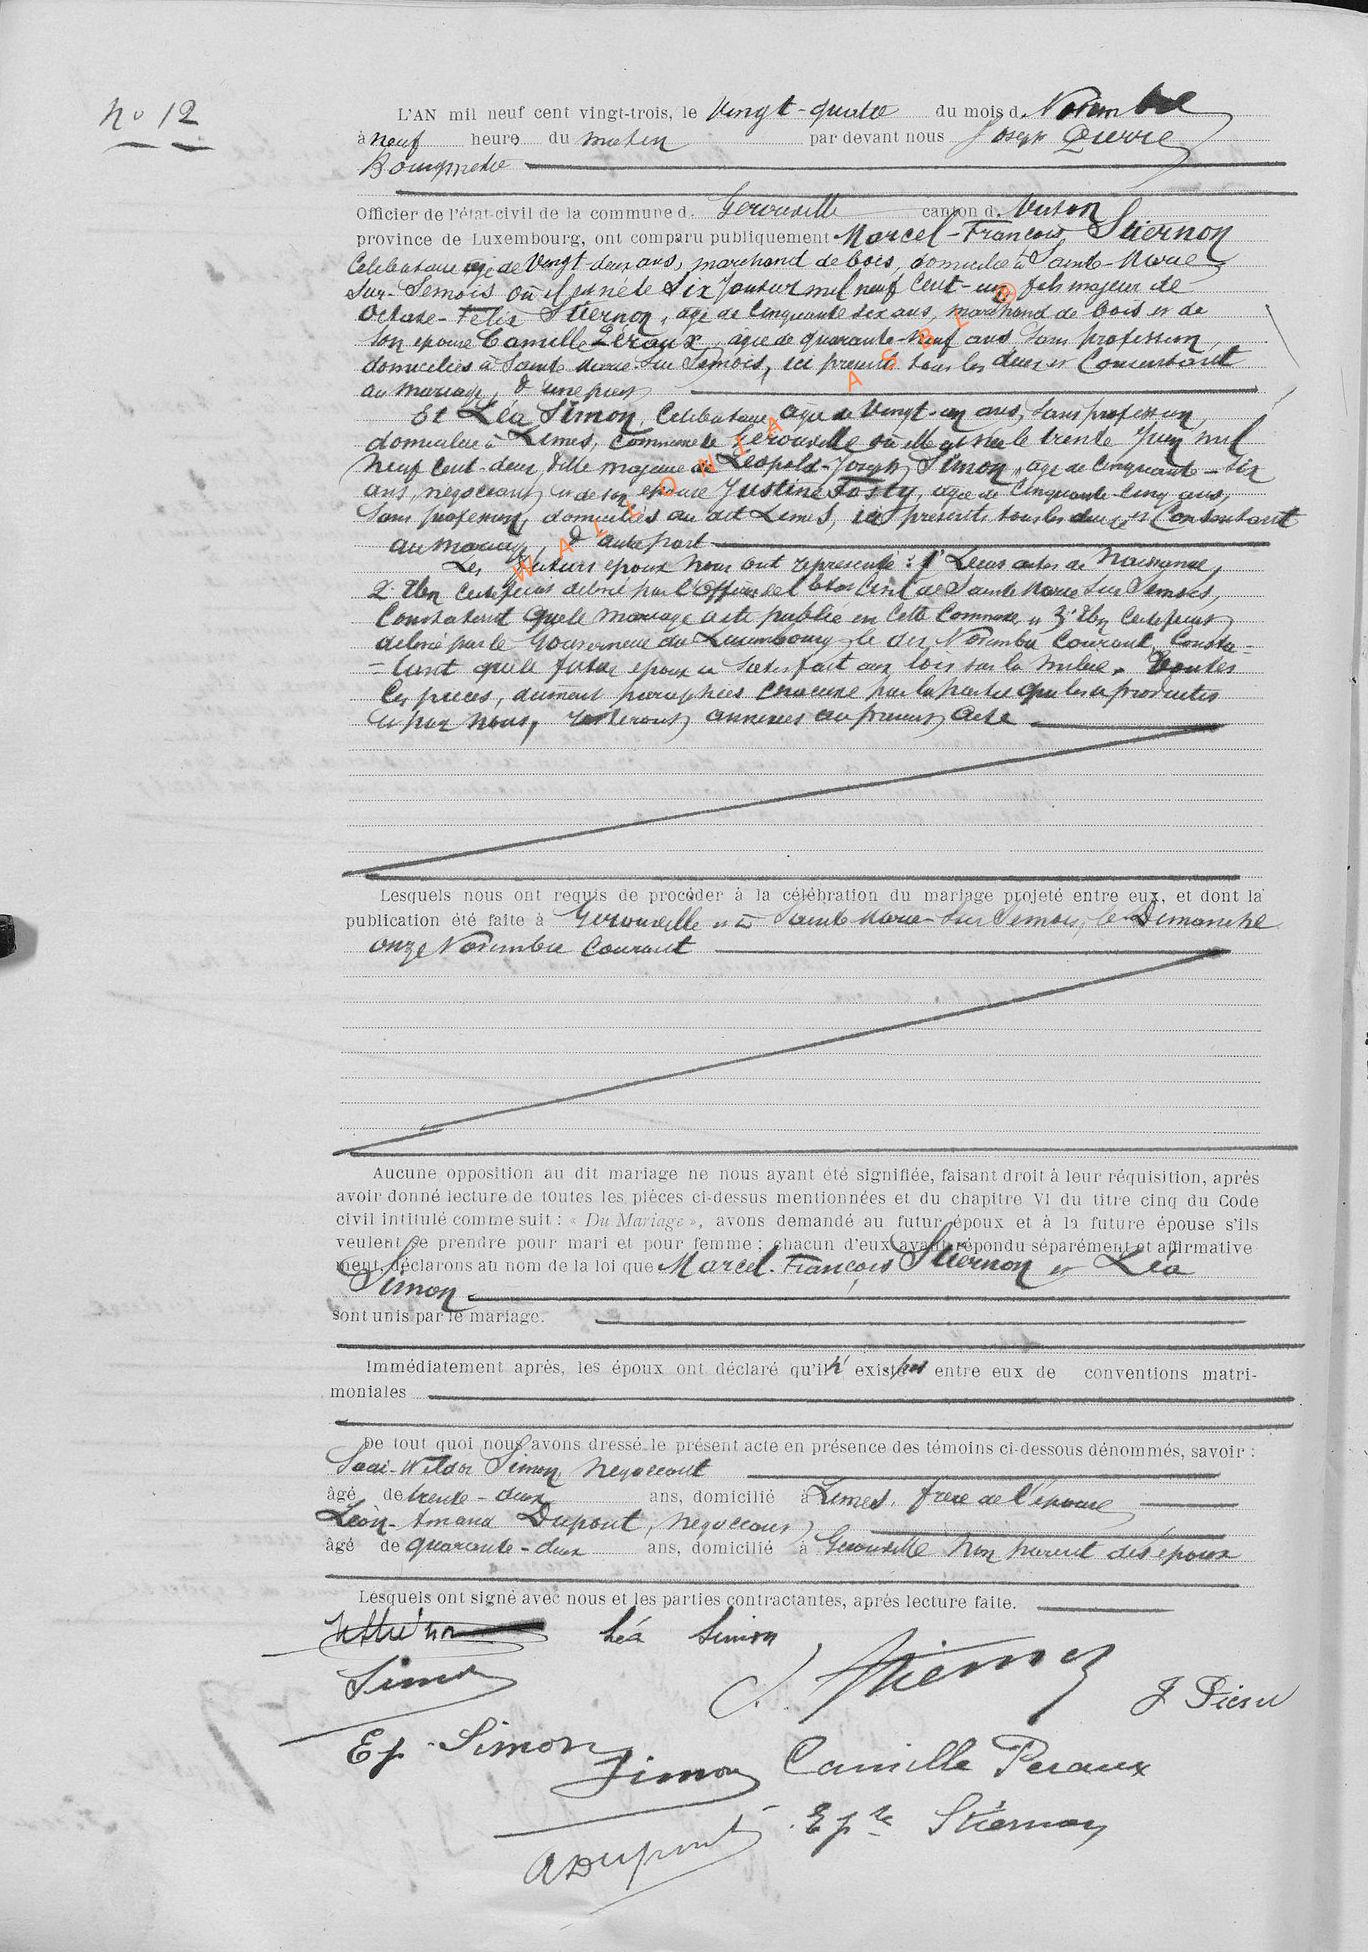 No 12
L'AN mil neuf cent vingt-trois, le vingt-quatre du mois d. Novembre
à neuf heures du matin par devant nous Joseph Pierre
Bourgmestre
Officier de l'état-civil de la commune d. Gérouville canton d. Virton
province de Luxembourg, ont comparu publiquement Marcel-François Stiernon
Célibataire âgé de vingt-deux ans, marchand de bois, domicilié à Sainte-Marie
Sur-Semois où il est né le six Janvier mil neuf cent-un, fils majeur de
Octave-Félix Stiernon, âgé de cinquante six ans, marchand de bois et de
son épouse Camille Péraux, âgée de quarante-neuf ans, sans profession,
domiciliés à Sainte Marie Sur Semois, ici présents tous les deux et consentant
au mariage, d'une part
Et Léa Simon, Célibataire, âgée de vingt-un ans, sans profession,
domiciliée à Limes, commune de Gérouville où elle est née le trente Juin mil
neuf cent-deux, fille majeure de Léopold-Joseph Simon, âgé de cinquante-six
ans, négociant, et de son épouse Justine Fosty, âgée de cinquante-cinq ans,
sans profession, domiciliés au dit Limes, ici présents tous les deux et consentant
au mariage, d'autre part
Les futurs époux nous ont représenté : 1° Leurs actes de naissance,
2° Un certificat délivré par l'Officier de l'état civil de Sainte Marie Sur Semois,
constatant que le mariage a été publié en cette commune et 3° Un certificat
délivré par le Gouverneur du Luxembourg le dix Novembre courant, consta-
=tant que le futur époux a satisfait aux lois sur la milice. Toutes
ces pièces, dûment paraphées chacune par la partie qui les a produites
et par nous, resteront annexées au présent acte
Lesquels nous ont requis de procéder à la célébration du mariage projeté entre eux, et dont la
publication été faite à Gérouville et à Sainte Marie-Sur Semois, le Dimanche
onze Novembre courant
Aucune opposition au dit mariage ne nous ayant été signifiée, faisant droit à leur réquisition, après
avoir donné lecture de toutes les pièces ci-dessus mentionnées et du chapitre VI du titre cinq du Code
civil intitulé comme suit : « Du Mariage », avons demandé au futur époux et à la future épouse s'ils
veulent se prendre pour mari et pour femme ; chacun d'eux ayant répondu séparément et affirmative
ment, déclarons au nom de la loi que Marcel-François Stiernon et Léa
Simon
sont unis par le mariage.
Immédiatement après, les époux ont déclaré qu'il n' existe pas entre eux de conventions matri-
moniales
De tout quoi nous avons dressé le présent acte en présence des témoins ci-dessous dénommés, savoir :
Simon, négociant
âgé de trente-deux ans, domicilié à Limes, frère de l'épouse
Léon-Amand Dupont, négociant,
âgé de quarante-deux ans, domicilié à Gérouville non parent des époux
Lesquels ont signé avec nous et les parties contractantes, après lecture faite.
Léa Simon
Simon
Stiernon
J. Pierre
Ep. Simon
Simon
Camille Peraux
Epse Stiernon
A Dupont
WALLONIA ASBL ®